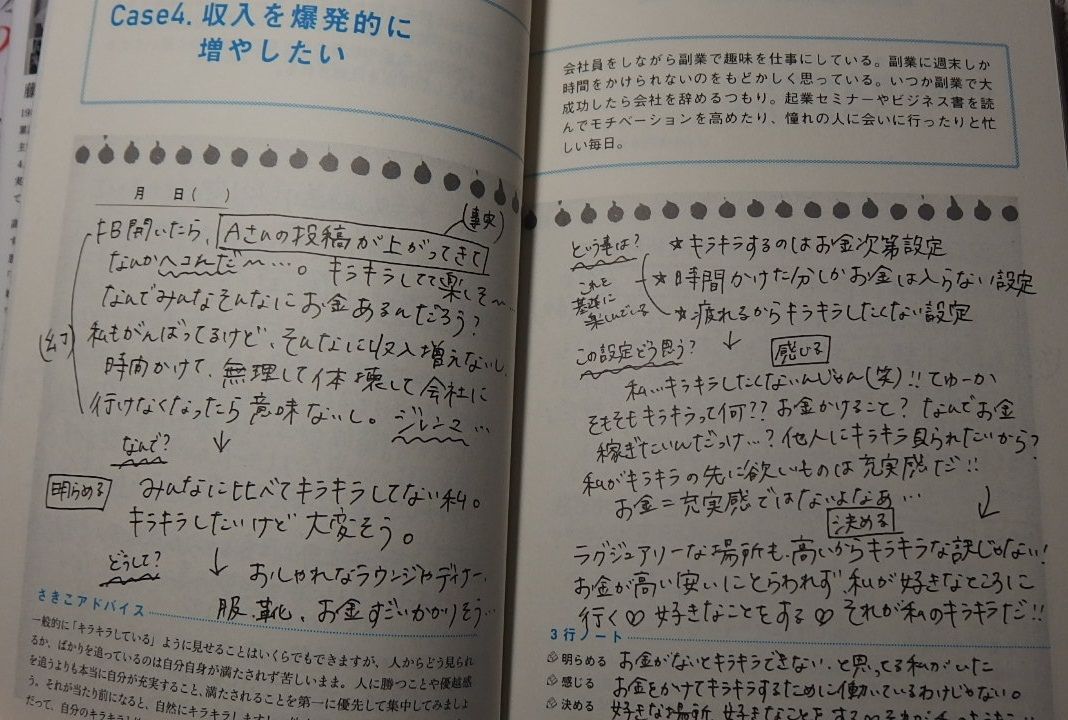 Case4. 収入を爆発的に
増やしたい
月　日(　)
(事実)
FB開いたら、Aさんの投稿が上がってきて
なんかヘコんだ〜…。キラキラしてて楽しそ〜
なんでみんなそんなにお金あるんだろう?
私もがんばってるけど、そんなに収入増えないし、
時間かけて、無理して体壊して会社に
行けなくなったら意味ないし。ジレンマ…
なんで? ↓
明らめる みんなに比べてキラキラしてない私。
キラキラしたいけど大変そう。
どうして? ↓ おしゃれなラウンジやディナー、
服、靴、お金すごいかかりそう…
さきこアドバイス
一般的に「キラキラしている」ように見せることはいくらでもできますが、人からどう見られ
るか、ばかりを追っているのは自分自身が満たされず苦しいまま。人に勝つことや優越感
を追うよりも本当に自分が充実すること、満たされることを第一に優先して集中してみましょ
う。それが当たり前になると、自然にキラキラします
だって、自分のキラキラ
会社員をしながら副業で趣味を仕事にしている。副業に週末しか
時間をかけられないのをもどかしく思っている。いつか副業で大
成功したら会社を辞めるつもり。起業セミナーやビジネス書を読
んでモチベーションを高めたり、憧れの人に会いに行ったりと忙
しい毎日。
という事は? ☆キラキラするのはお金次第設定
これを
基準に
楽しんでいる
☆時間かけた分しかお金は入らない設定
☆疲れるからキラキラしたくない設定
この設定どう思う? ↓ 感じる
私…キラキラしたくないんじゃん(笑)!! てゆーか
そもそもキラキラって何?? お金かけること? なんでお金
稼ぎたいんだっけ…? 他人にキラキラ見られたいから?
私がキラキラの先に欲しいものは充実感だ!!
お金=充実感ではないよなあ… ↓
決める
ラグジュアリーな場所も、高いからキラキラな訳じゃない!
お金が高い安いにとらわれず、私が好きなところに
行く♡ 好きなことをする♡ それが私のキラキラだ!!
3行ノート
明らめる お金がないとキラキラできない、と思ってる私がいた
感じる お金をかけてキラキラするために働いているわけじゃない。
決める 好きな場所、好きなことをする